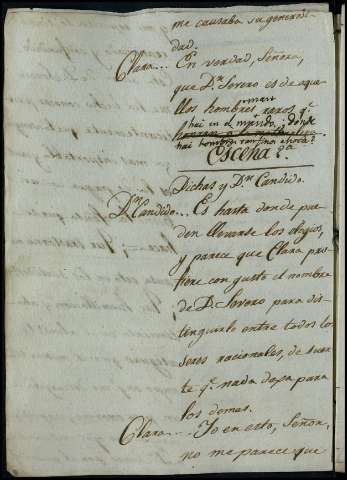 me causaba su generosi-
dad.
Clara... En verdad, Señora,
que Dn. Severo es de aque-
llos hombres raros q.e
hai en el mundo: donde
hai hombres tan finos ahora?
Escena 2a.
Dichas y Dn. Candido.
Dn. Candido... Es hasta donde pue-
den llevarse los elogios,
y parece que Clara pro-
fiere con gusto el nombre
de D. Severo para dis-
tinguirle entre todos los
seres racionales, de suer-
te q.e nada dexa para
los demas.
Clara... Yo en esto, Señor,
no me parece que